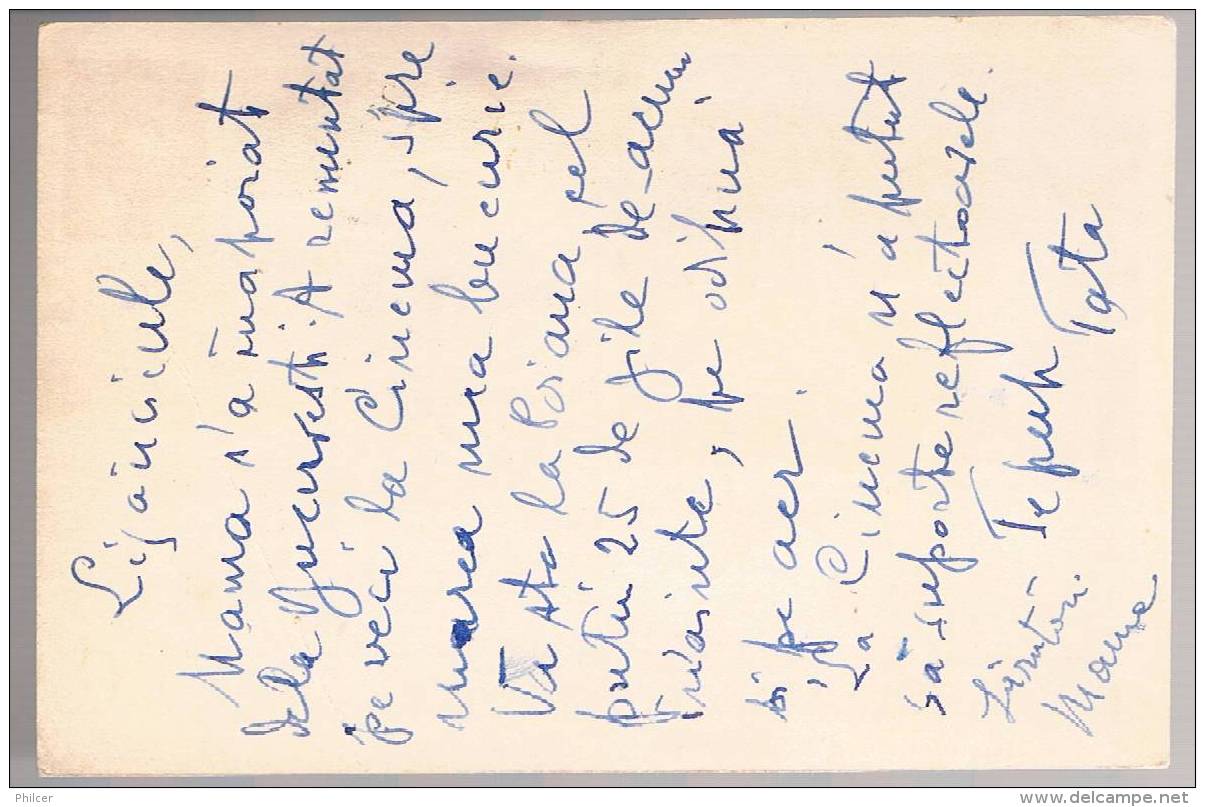 Ligăncicule,
Mama s'a înapoiat
dela București. A renunțat
pe veci la Cinema, spre
marea mea bucurie.
Va sta la Poiana cel
puțin 25 de zile de-acum
înainte, pe odihnă
și pe aer.
La Cinema n'a putut
să suporte reflectoarele.
Te pup
Tata
Sărutări
Mama
Philcer
www.delcampe.net